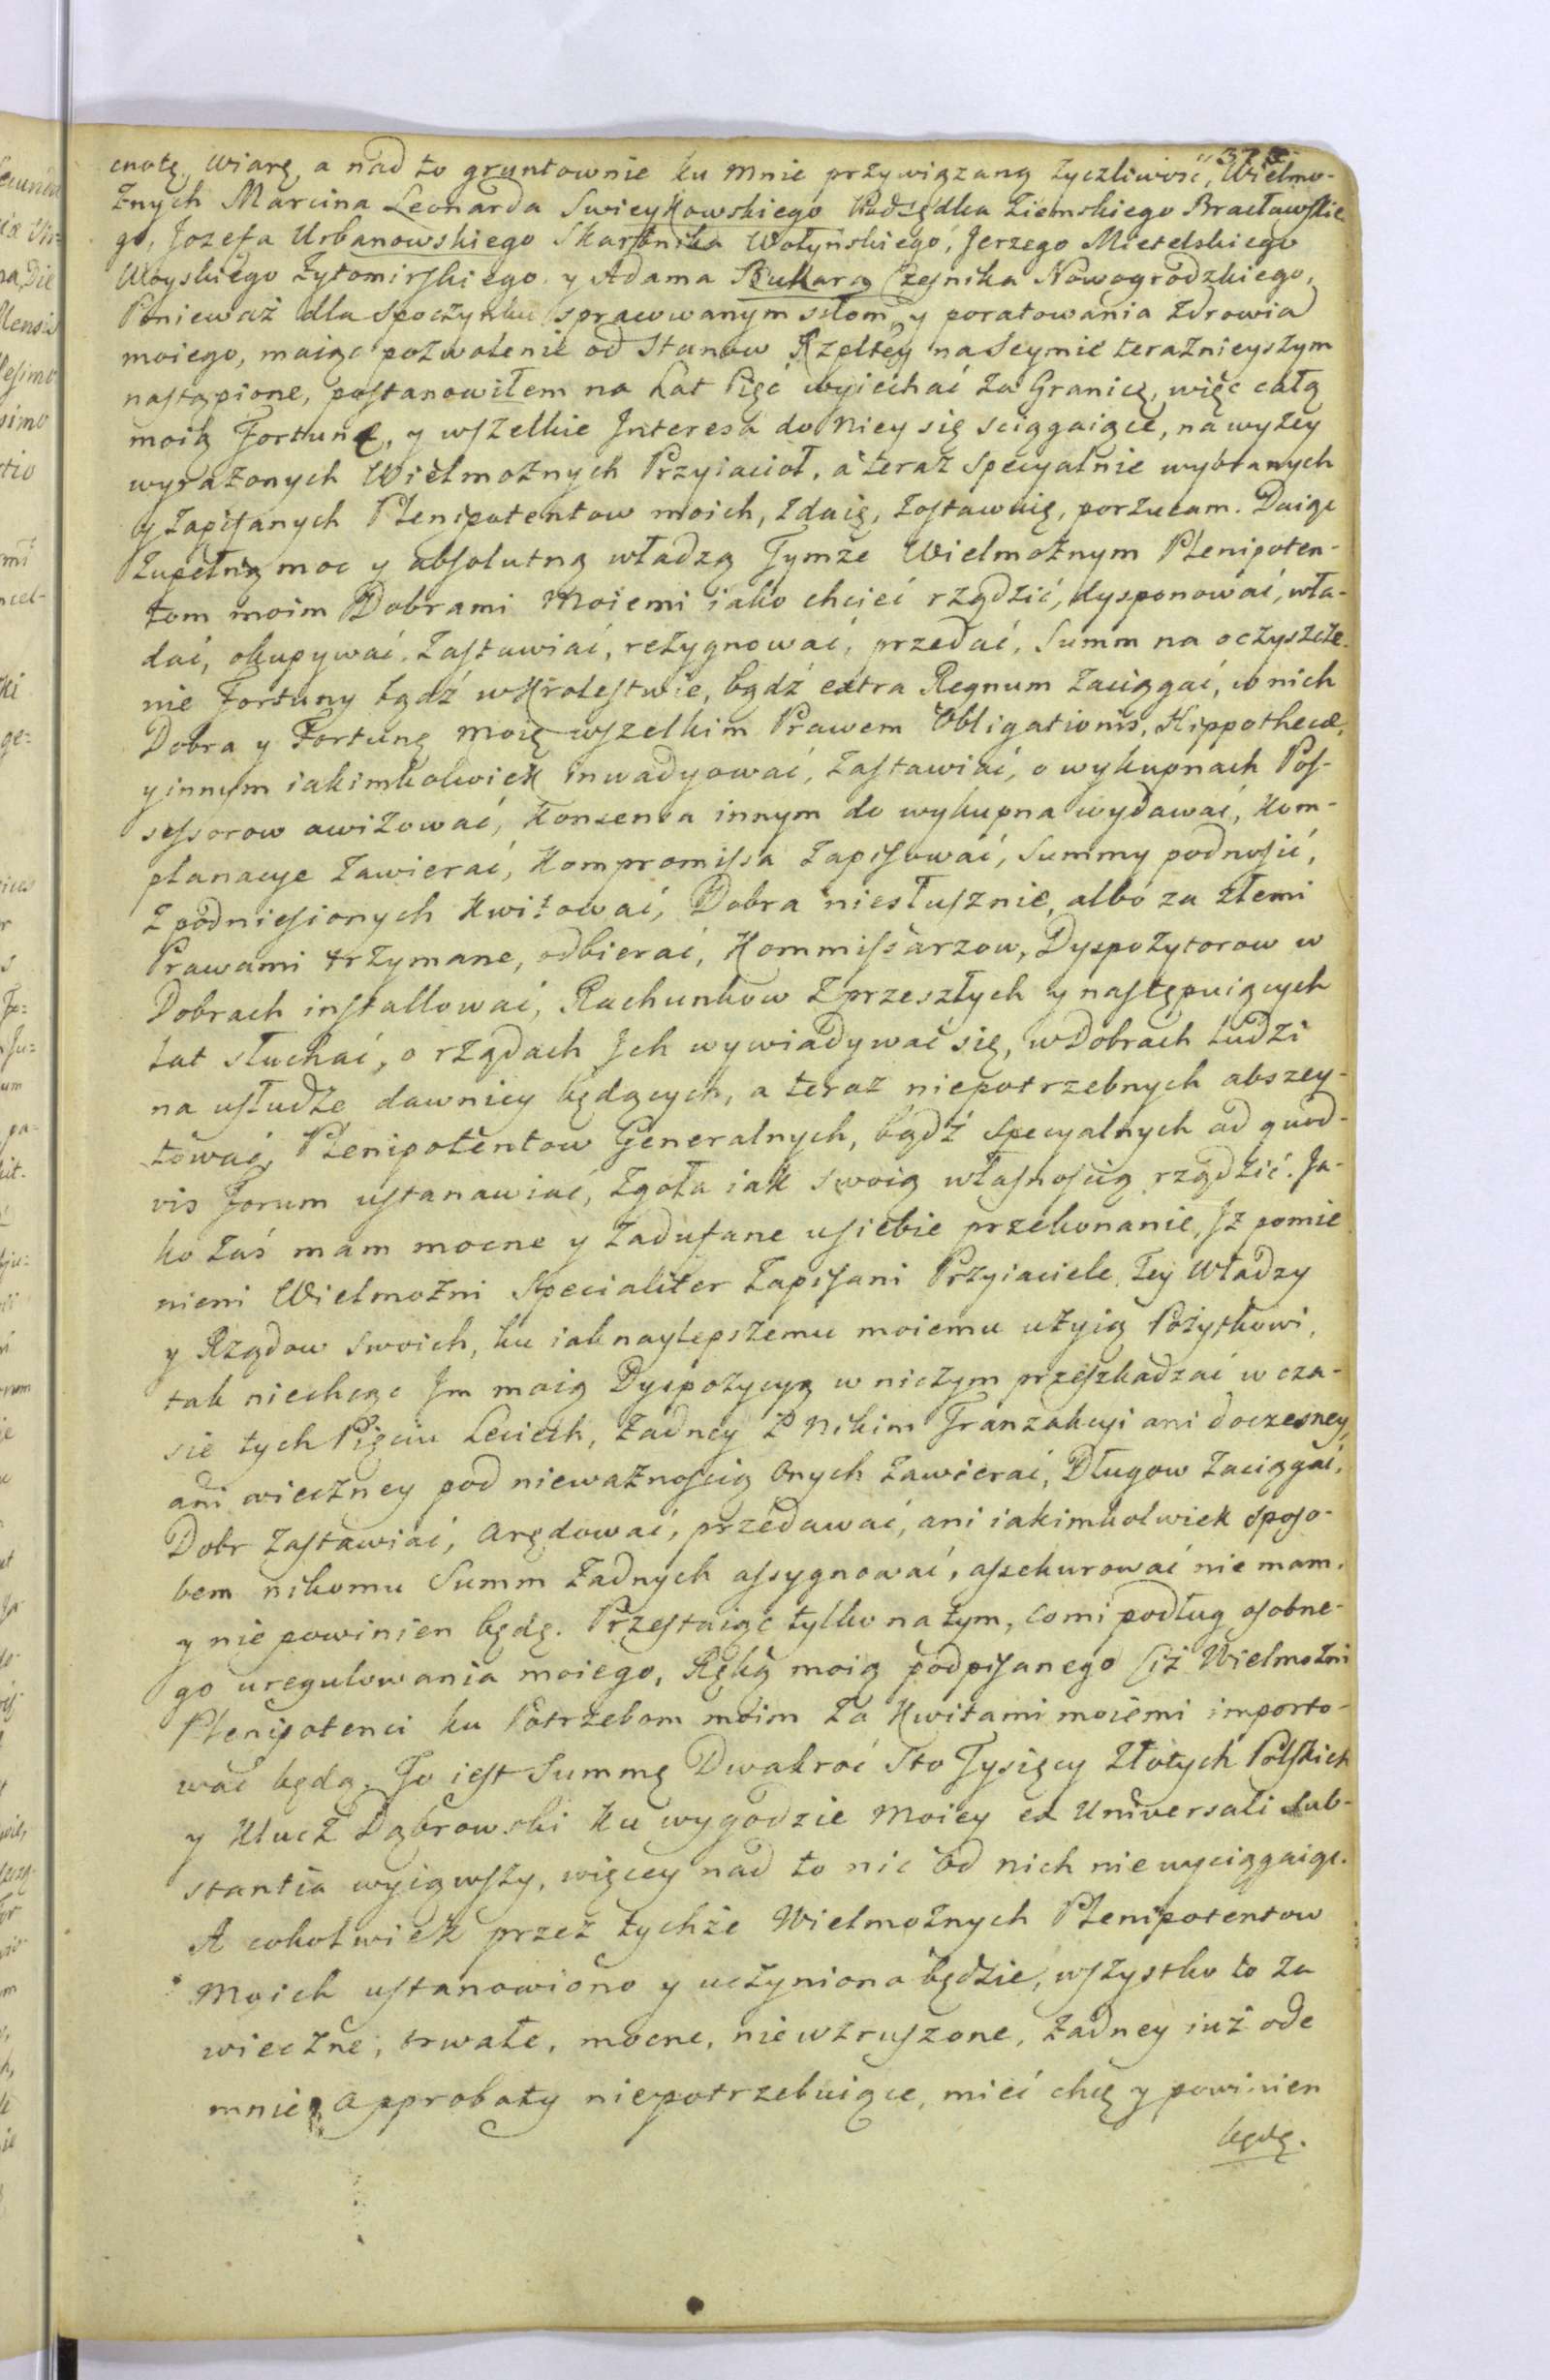 cnotę, wiarę, a nad to gruntownie ku mnie przywiązaną życzliwość, Wielmo-
żnych Marcina Leonarda Swieykowskiego Podsędka Ziemskiego Bracławskie
go, Jozefa Urbanowskiego Skarbnika Wołyńskiego, Jerzego Mietelskiego
Woyskiego Żytomirskiego y Adama Bukara Czesnika Nowogrodzkiego,
Ponieważ dla spoczynku spracowanym siłom, y poratowania Zdrowia
moiego, maiąc pozwolenie od Stanow Rzpltey na Seymie teraznieyszym
nastąpione, postanowiłem na Lat Pięć wyiechać za Granicę, więc całą
moią Fortunę, y wszelkie Interesa do niey się sciągaiące, na wyżey
wyrażonych Wielmożnych Przyiacioł, a teraz specyalnie wybranych
y zapisanych Plenipotentow moich, zdaię, zostawuię, porzucam. Daiąc
zupełną moc y absolutną władzą Tymże Wielmożnym Plenipoten-
tom moim Dobrami Moiemi iako chcieć rządzić, dysponować, wła-
dać, okupywać, zastawiać, rezygnować, przedać, Summ na oczyszcze-
nie Fortuny bądź w Krolestwie, bądź extra Regnum zaciągać, w nich
Dobra y Fortunę moię wszelkim Prawem Obligationis, Hippothecæ,
y innym iakimkolwiek inwadyować, zastawiać, o wykupnach Pos-
sessorow awizować, Konsensa innym do wykupna wydawać, Kom-
planacye zawierać, Kompromissa zapisować, Summy podnosić,
z podniesionych kwitować, Dobra niesłusznie, albo za złemi
Prawami trzymane, odbierać, Kommissarzow, Dyspozytorow w
Dobrach installować, Rachunkow z przeszłych y następuiących
lat słuchać, o rządach Jch wywiadywać się, w Dobrach ludzi
na usłudze dawniey będących, a teraz niepotrzebnych abszey-
tować, Plenipotentow Generalnych, bądź specyalnych ad quod-
vis Forum ustanawiać, zgoła iak swoią własnoscią rządzić. Ja-
ko zaś mam mocne y zadufane u siebie przekonanie, Jż pomie
nieni Wielmożni Specialiter zapisani Przyiaciele, tey władzy
y Rządow swoich, ku iak naylepszemu moiemu użyią Pożytkowi,
tak niechcąc Jm moią Dyspozycyą w niczym przeszkadzać w cza-
sie tych Pięciu Leciech, żadney z nikim Tranzakcyi ani doczesney,
ani wieczney pod nieważnoscią onych zawierać, Długow zaciągać,
Dobr zastawiać, arędować, przedawać, ani iakimkolwiek sposo-
bem nikomu Summ żadnych assygnować, assekurować nie mam,
y nie powinien będę. Przestaiąc tylko na tym, co mi podług osobne-
go uregulowania moiego, Ręką moią podpisanego Ciż Wielmożni
Plenipotenci ku Potrzebom moim za Kwitami moiemi importo-
wać będą. To iest Summę Dwakroć Sto Tysięcy Złotych Polskich
y Klucz Dąbrowski ku wygodzie moiey ex Universali sub-
stantia wyiąwszy, więcey nad to nic od nich nie wyciągaiąc.
A cokolwiek przez tychże Wielmożnych Plenipotentow
Moich ustanowiono y uczyniono będzie, wszystko to za
wieczne, trwałe, mocne, niewzruszone, żadney iuż ode
mnie approbaty niepotrzebuiące, mieć chcę y powinien
będę.